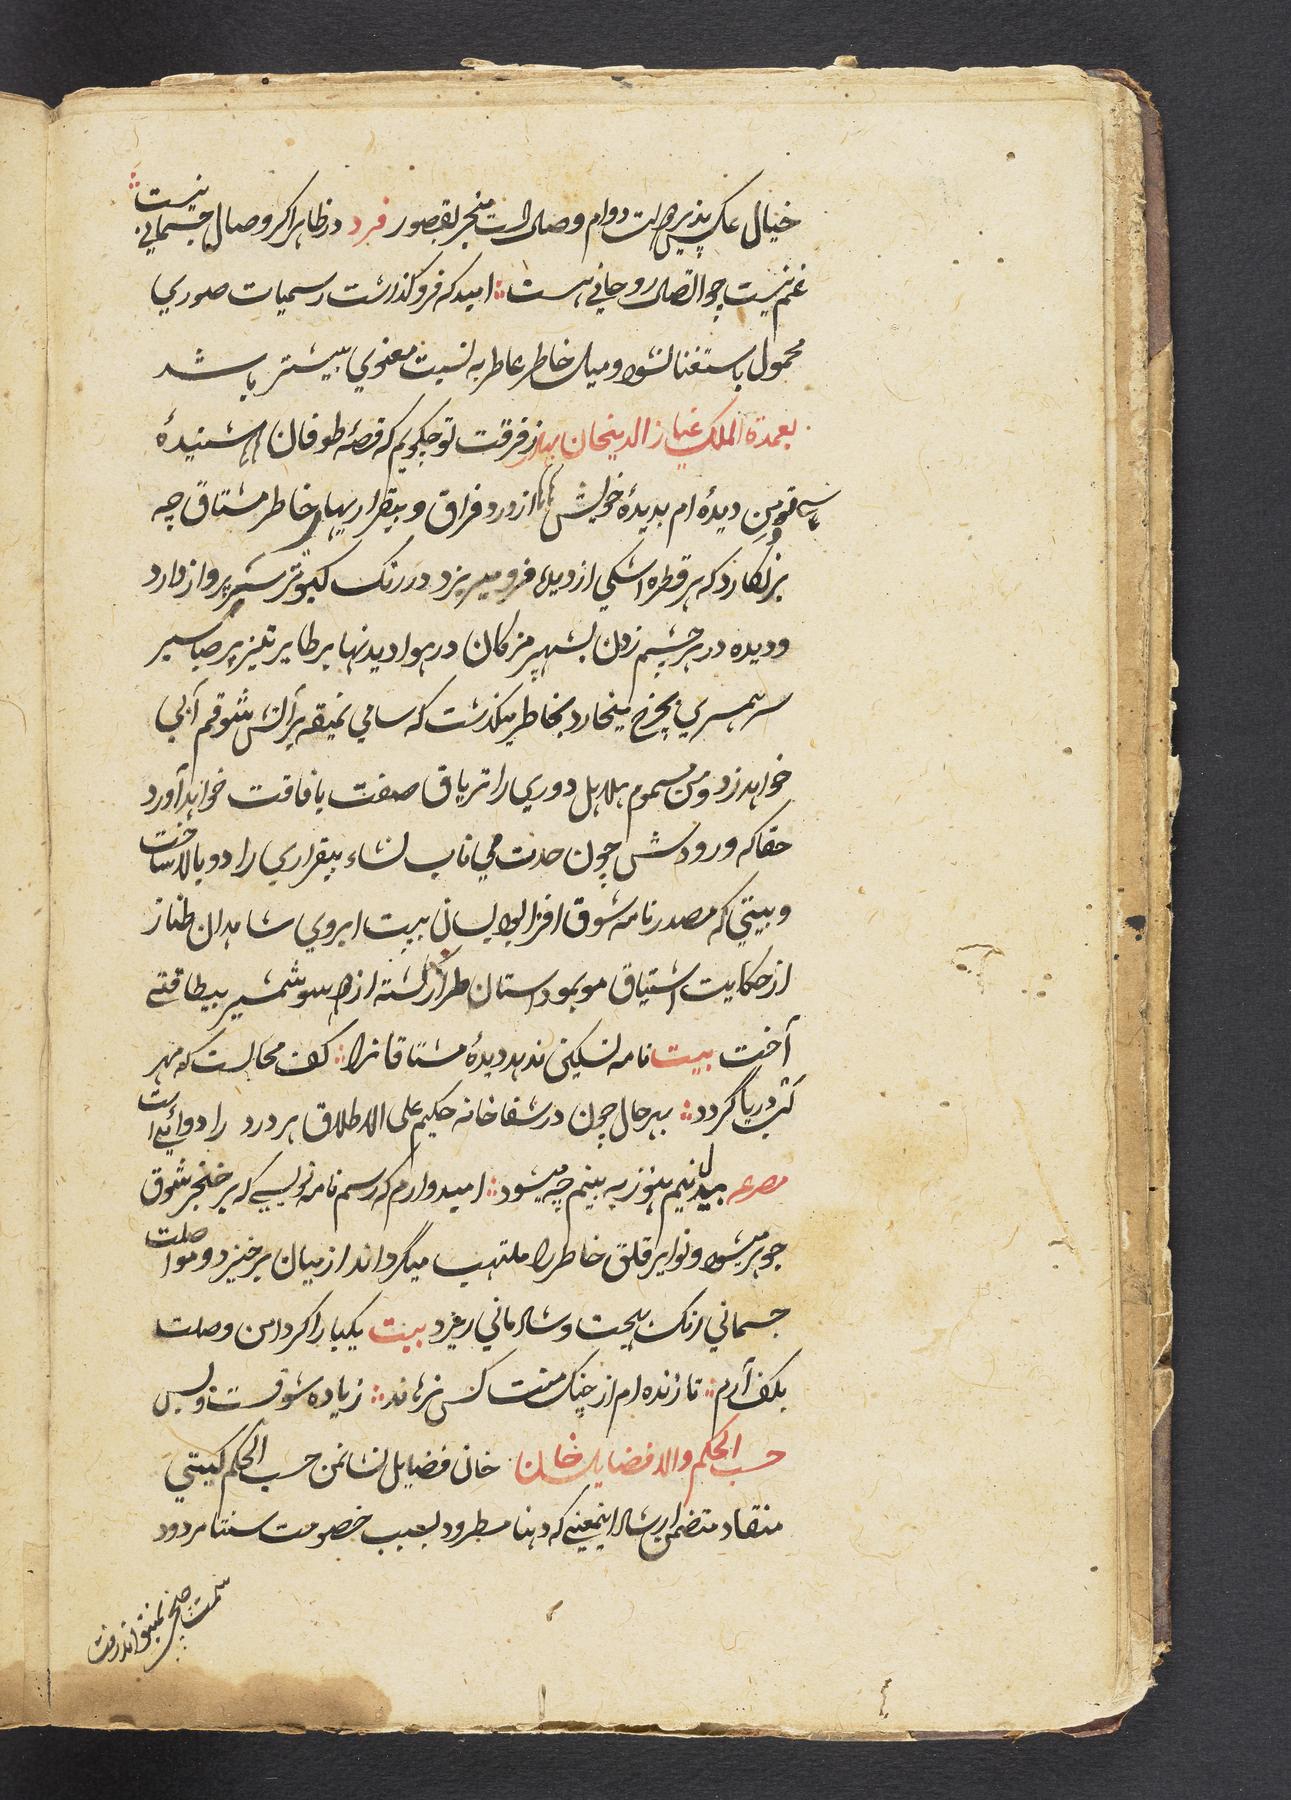 خیال عکس پذیر صورت دوام وصال است منجر بقصور فرد در ظاهر اکر وصال جسمانی نیست
غم نیست چو اتصال روحانی هست امید که فروکذاشت رسمیات صوری
محمول باستغنا نشود و میل خاطر عاطر به نسبت معنوی بیشتر باشد
بعمدة الملک غیاز الدینخان بهادر ز فرقت تو چکویم که قصهٔ طوفان شنیدهٔ
تو و من دیده ام بدیدهٔ خویش از درد فراق و بیقراریهای خاطر مشتاق چه
بر نکارد که هر قطره اشکی از دیده فرو میریزد در رنک کبوتر سر پرواز دارد
و دیده در هر چشم زدن بشهپر مژکان در هوا دیدنها بر طایر تیز پر صبا سیر
سر همسری بچرخ میخارد بخاطر میکذشت که سامی نمیقه بر آتش شوقم آبی
خواهد زد و من مسموم هلاهل دوری را تریاق صفت بافاقت خواهد آورد
حقا که ورودش چون حدت می ناب نشاء بیقراری را دوبالا ساخت
و بیتی که مصدر نامه شوق افزا بود بسان بیت ابروی شاهدان طناز
از حکایت اشتیاق مو بمو داستان طراز کشته از هر سو شمشیر بیطاقتی
آخت بیت نامه تسکین ندهد دیدهٔ مشتاقانرا کف محالست که مهر
لب دریا گردد بهر حال چون در شفاخانه حکیم علی الاطلاق هر درد را دوائی است
مصرعه میدانیم هنوز به بینم چه میشود امیدوارم که رسم نامه نویسی که بر خنجر شوق
جوهر میشود و نوایر قلق خاطر را ملتهب میگرداند از میان برخیزد و مواصلت
جسمانی رنک بهجت و شادمانی ریزد بیت یکبار اکر دامن وصلت
بکف آرم تا زنده ام از چنک منت کس نرهاند زیاده شوقست و بس
حسب الحکم والا فضایل خان خان فضایل نشان من حسب الحکم کیتی
منقاد متضمن ارشاد اینمعنی که دهنا مطرود بسبب خصومت سنتا مردود
سمت صلح نمیتواند رفت